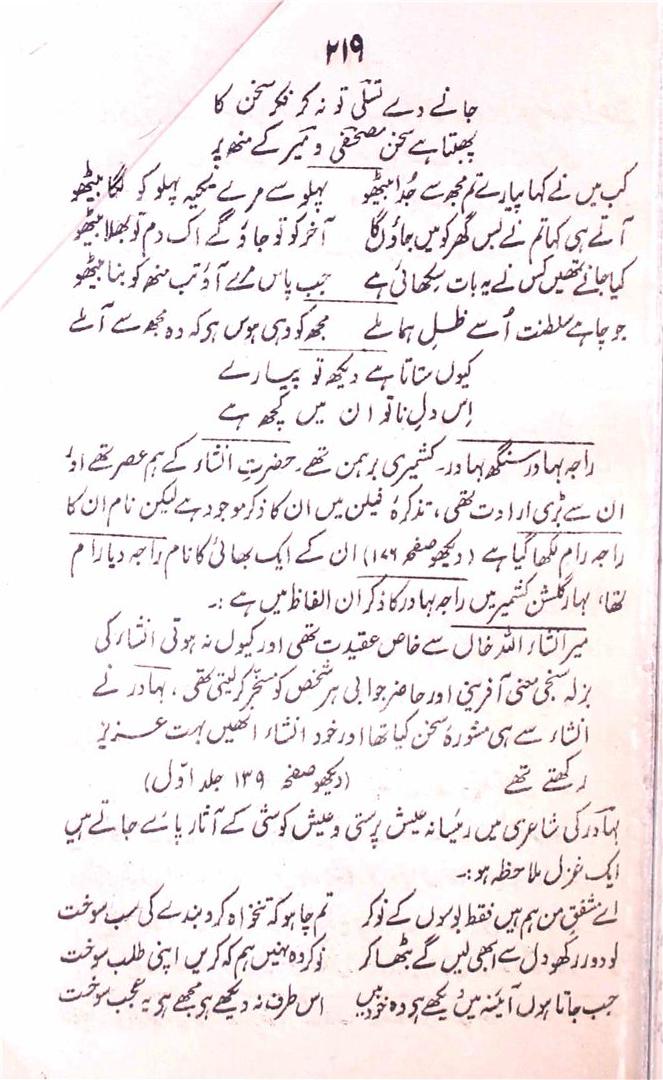 ۲۱۹
جانے دے تسلی تو نہ کر فکر سخن کا
پھبتا ہے سخن مصحفی و میر کے منھ پر
کب میں نے کہا پیارے تم مجھ سے جُدا بیٹھو پہلو سے مرے یکجیہ پہلو کو لگا بیٹھو
آتے ہی کہا تم نے بس گھر کو میں جاؤں گا آخر کو تو جاؤ گے اک دم تو بھلا بیٹھو
کیا جانے تمھیں کس نے یہ بات سکھائی ہے جب پاس مرے آؤ تب منھ کو بنا بیٹھو
جو چاہے سلطنت اُسے ظلِ ہما ملے مجھ کو وہی ہوس ہو کہ وہ مجھ سے آ ملے
کیوں ستاتا ہے دیکھ تو پیارے
اِس دلِ ناتواں میں کچھ ہے
راجہ بہادر سنگھ بہادر۔ کشمیری برہمن تھے۔ حضرتِ انشاء کے ہم عصر تھے اور
ان سے بڑی ارادت تھی، تذکرۂ فیلن میں ان کا ذکر موجود ہے لیکن نام ان کا
راجہ رام لکھا گیا ہے (دیکھو صفحہ ۱۷۶) ان کے ایک بھائی کا نام راجہ دیا رام
تھا، بہار گلشن کشمیر میں راجہ بہادر کا ذکر ان الفاظ میں ہے :۔
میر انشاء اللہ خاں سے خاص عقیدت تھی اور کیوں نہ ہوتی انشاء کی
بزلہ سنجی معنی آفرینی اور حاضر جوابی ہر شخص کو مسخّر کر لیتی تھی، بہادر نے
انشاء سے ہی مشورۂ سخن کیا تھا اور خود انشاء انھیں بہت عزیز
رکھتے تھے (دیکھو صفحہ ۱۳۹ جلد اوّل)
بہادر کی شاعری میں رئیسانہ عیش پرستی و عیش کوشی کے آثار پائے جاتے ہیں
ایک غزل ملاحظہ ہو :۔
اے مشفق من ہم ہیں فقط بوسوں کے نوکر تم چاہو کہ تنخواہ کرو بندے کی سب سوخت
لو دو رکھو دل سے ابھی لیں گے بٹھا کر نوکر وہ نہیں ہم کہ کریں اپنی طلب سوخت
جب جاتا ہوں آئینہ میں دیکھے ہو وہ خود بیں اس طرف نہ دیکھے ہو مجھے ہو یہ عجب سوخت